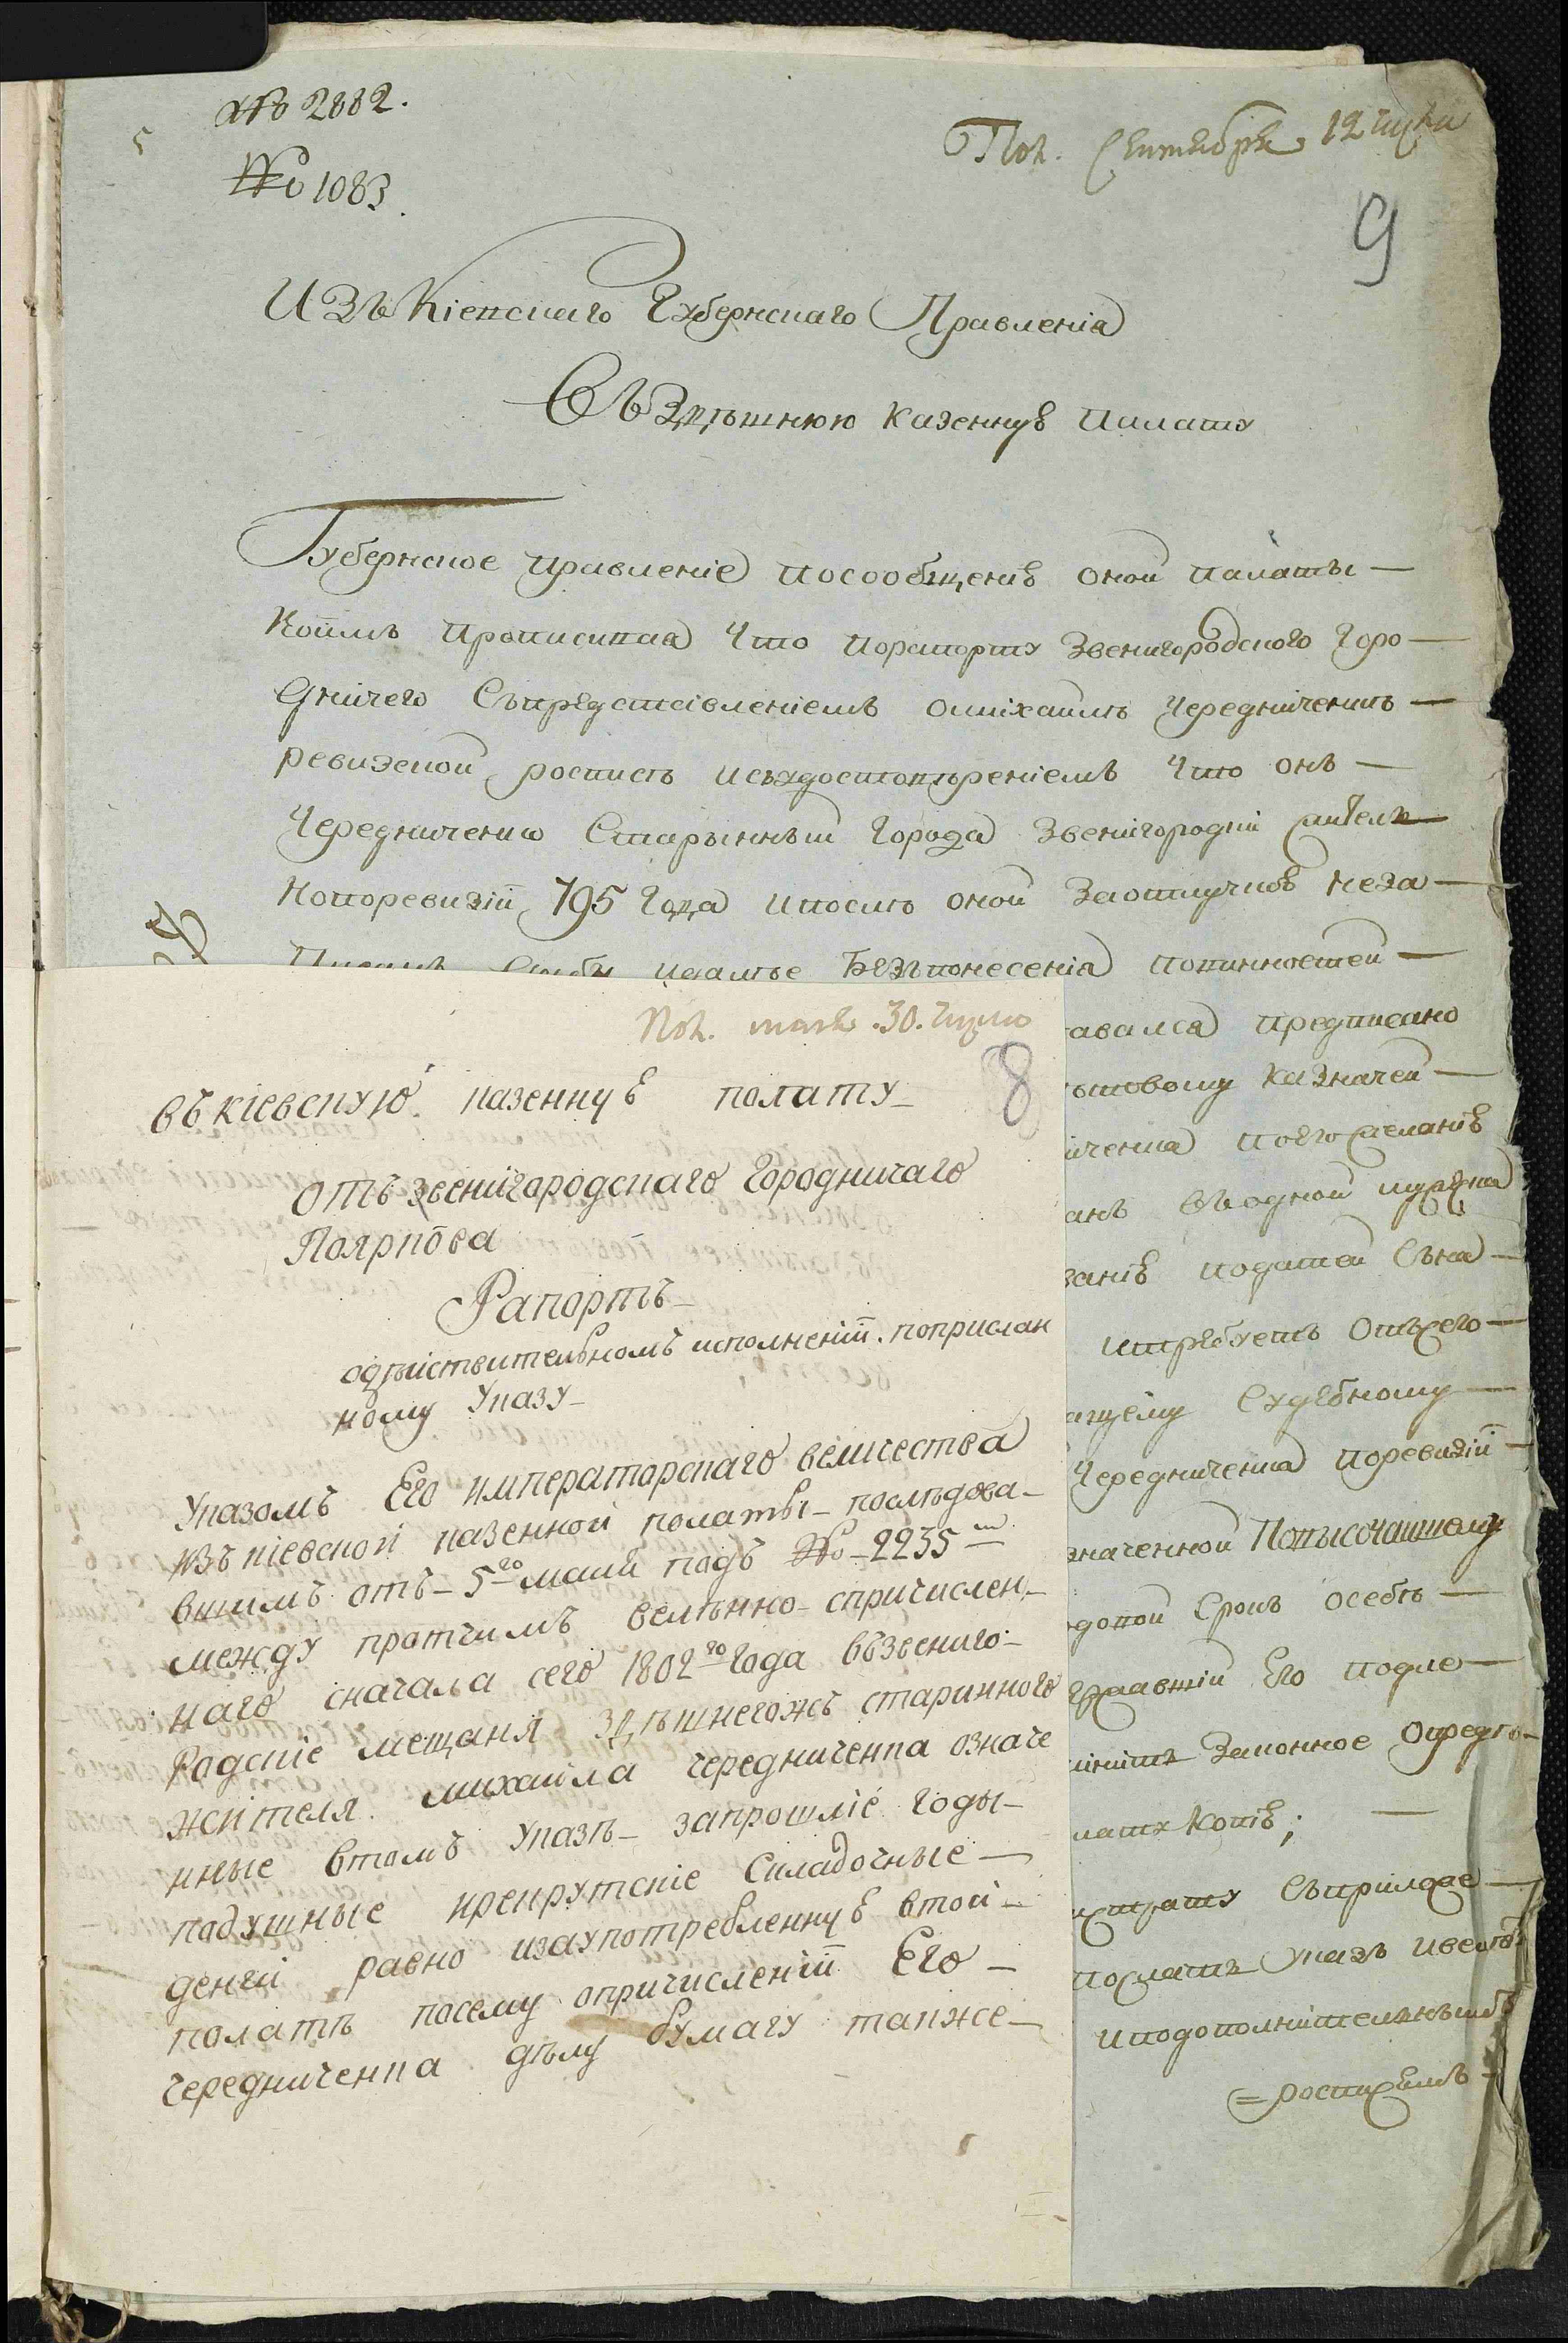 № 2882.
Пол. Сентября 12 числа
№ 1083.
9
Изъ Кіевскаго Губернскаго Правленія
Въ Здѣшнюю казенную палату
Губернское правленіе посообщенію оной палаты —
коимъ прописывая что порапорту Звенигородского Горо—
дничего Съпредставленіемъ омихайлѣ Чередниченкѣ —
ревизской роспись исъудостовѣреніемъ что онъ —
Чередниченко Старынный города Звенигородки житель
нопоревизіи 795 года ипосилъ оной Заотлучкою неза—
идалѣе Безъпонесенія повинностей —
авался предписано
ытовому казначей—
иченка поего желанію
анъ въодной
занію податей Съна—
итребуетъ Отъсего—
ащему Судебному —
Чередниченка поревизіи —
значенной Повысочайшему
одовой Срокъ осебѣ —
державшій Его подле—
инитъ Законное Опредѣ—
лату копію; —
истрату съприлож—
послать указъ ивелѣ
иподополнительнымъ
= роспискамъ
Пол. маія 30. числа
8
въ кіевскую казенную полату —
Отъ звенигородскаго Городничаго
Пояркова
Рапортъ —
одѣйствительномъ исполненіи поприслан
ному указу —
Указомъ Его императорскаго величества
изъ кіевской казенной полаты — послѣдова—
вшимъ отъ — 5го маія подъ № — 2235м
между протчимъ велѣнно — спричислен—
наго сначала сего 1802го года възвениго—
Родскіе мещаня здѣшнегожъ старинного
жителя михайла чередниченка означе
нные втомъ указѣ — запрошліе годы —
подушные ирекрутскіе Складочные —
денги равно изаупотребленную втой —
полатѣ посему опричисленіи Его —
чередниченка дѣлу бумагу также —